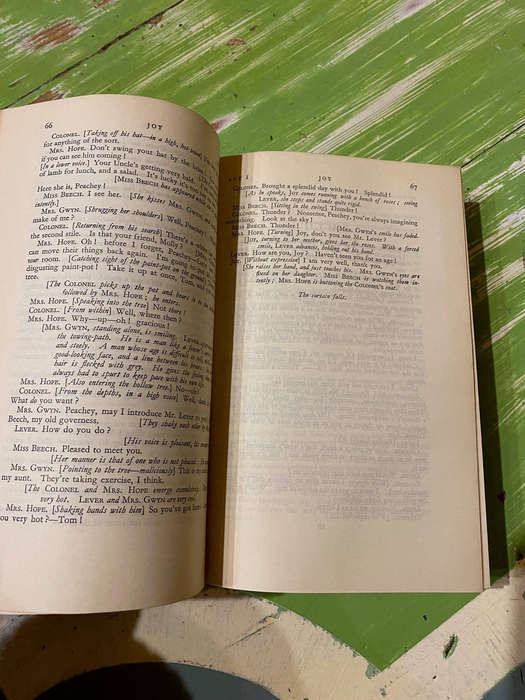 66 JOY
COLONEL. [Taking off his hat—in a high, but
for anything of the sort.
MRS. HOPE. Don't swing your hat by the
if you can see him coming!
[In a lower voice.] Your Uncle's getting very bald.
of lamb for lunch, and a salad. It's lucky it's
[MISS BEECH has appeared
Here she is, Peachey!
MISS BEECH. I see her. [She kisses MRS. GWYN, and
intently.]
MRS. GWYN. [Shrugging her shoulders] Well, Peachey,
make of me?
COLONEL. [Returning from his search] There's a
the second stile. Is that your friend, Molly? [MRS.
MRS. HOPE. Oh! before I forget, Peachey,
can move their things back again. I'm going to
your room. [Catching sight of the paint-pot on the ground]
disgusting paint-pot! Take it up at once, Tom, and
tree.
[The COLONEL picks up the pot and bears it to the
followed by MRS. HOPE; he enters.
MRS. HOPE. [Speaking into the tree] Not there!
COLONEL. [From within] Well, where then?
MRS. HOPE. Why—up—oh! gracious!
[MRS. GWYN, standing alone, is smiling. LEVER
the towing-path. He is a man like a fencer's
and steely. A man whose age is difficult to
good-looking face, and a line between his
hair is flecked with grey. He gives the
always had to spurt to keep pace with his own life.
MRS. HOPE. [Also entering the hollow tree] No—oh!
COLONEL. [From the depths, in a high voice] Well,
What do you want?
MRS. GWYN. Peachey, may I introduce Mr. Lever to you?
Beech, my old governess. [They shake each other by
LEVER. How do you do?
[His voice is pleasant, his
MISS BEECH. Pleased to meet you.
[Her manner is that of one who is not pleased.
MRS. GWYN. [Pointing to the tree—maliciously] This is my
my aunt. They're taking exercise, I think.
[The COLONEL and MRS. HOPE emerge convulsively.
very hot. LEVER and MRS. GWYN are very cool.
MRS. HOPE. [Shaking hands with him] So you've got here!
you very hot?—Tom!
ACT I JOY 67
COLONEL. Brought a splendid day with you! Splendid!
[As he speaks, JOY comes running with a bunch of roses; seeing
LEVER, she stops and stands quite rigid.
MISS BEECH. [Sitting in the swing] Thunder!
COLONEL. Thunder? Nonsense, Peachey, you're always imagining
Look at the sky!
MISS BEECH. Thunder! [MRS. GWYN'S smile has faded.
MRS. HOPE. [Turning] Joy, don't you see Mr. Lever?
[JOY, turning to her mother, gives her the roses. With a forced
smile, LEVER advances, holding out his hand.
LEVER. How are you, Joy? Haven't seen you for an age!
JOY. [Without expression] I am very well, thank you.
[She raises her hand, and just touches his. MRS. GWYN'S eyes are
fixed on her daughter. MISS BEECH is watching them in-
tently; MRS. HOPE is buttoning the COLONEL'S coat.
The curtain falls.